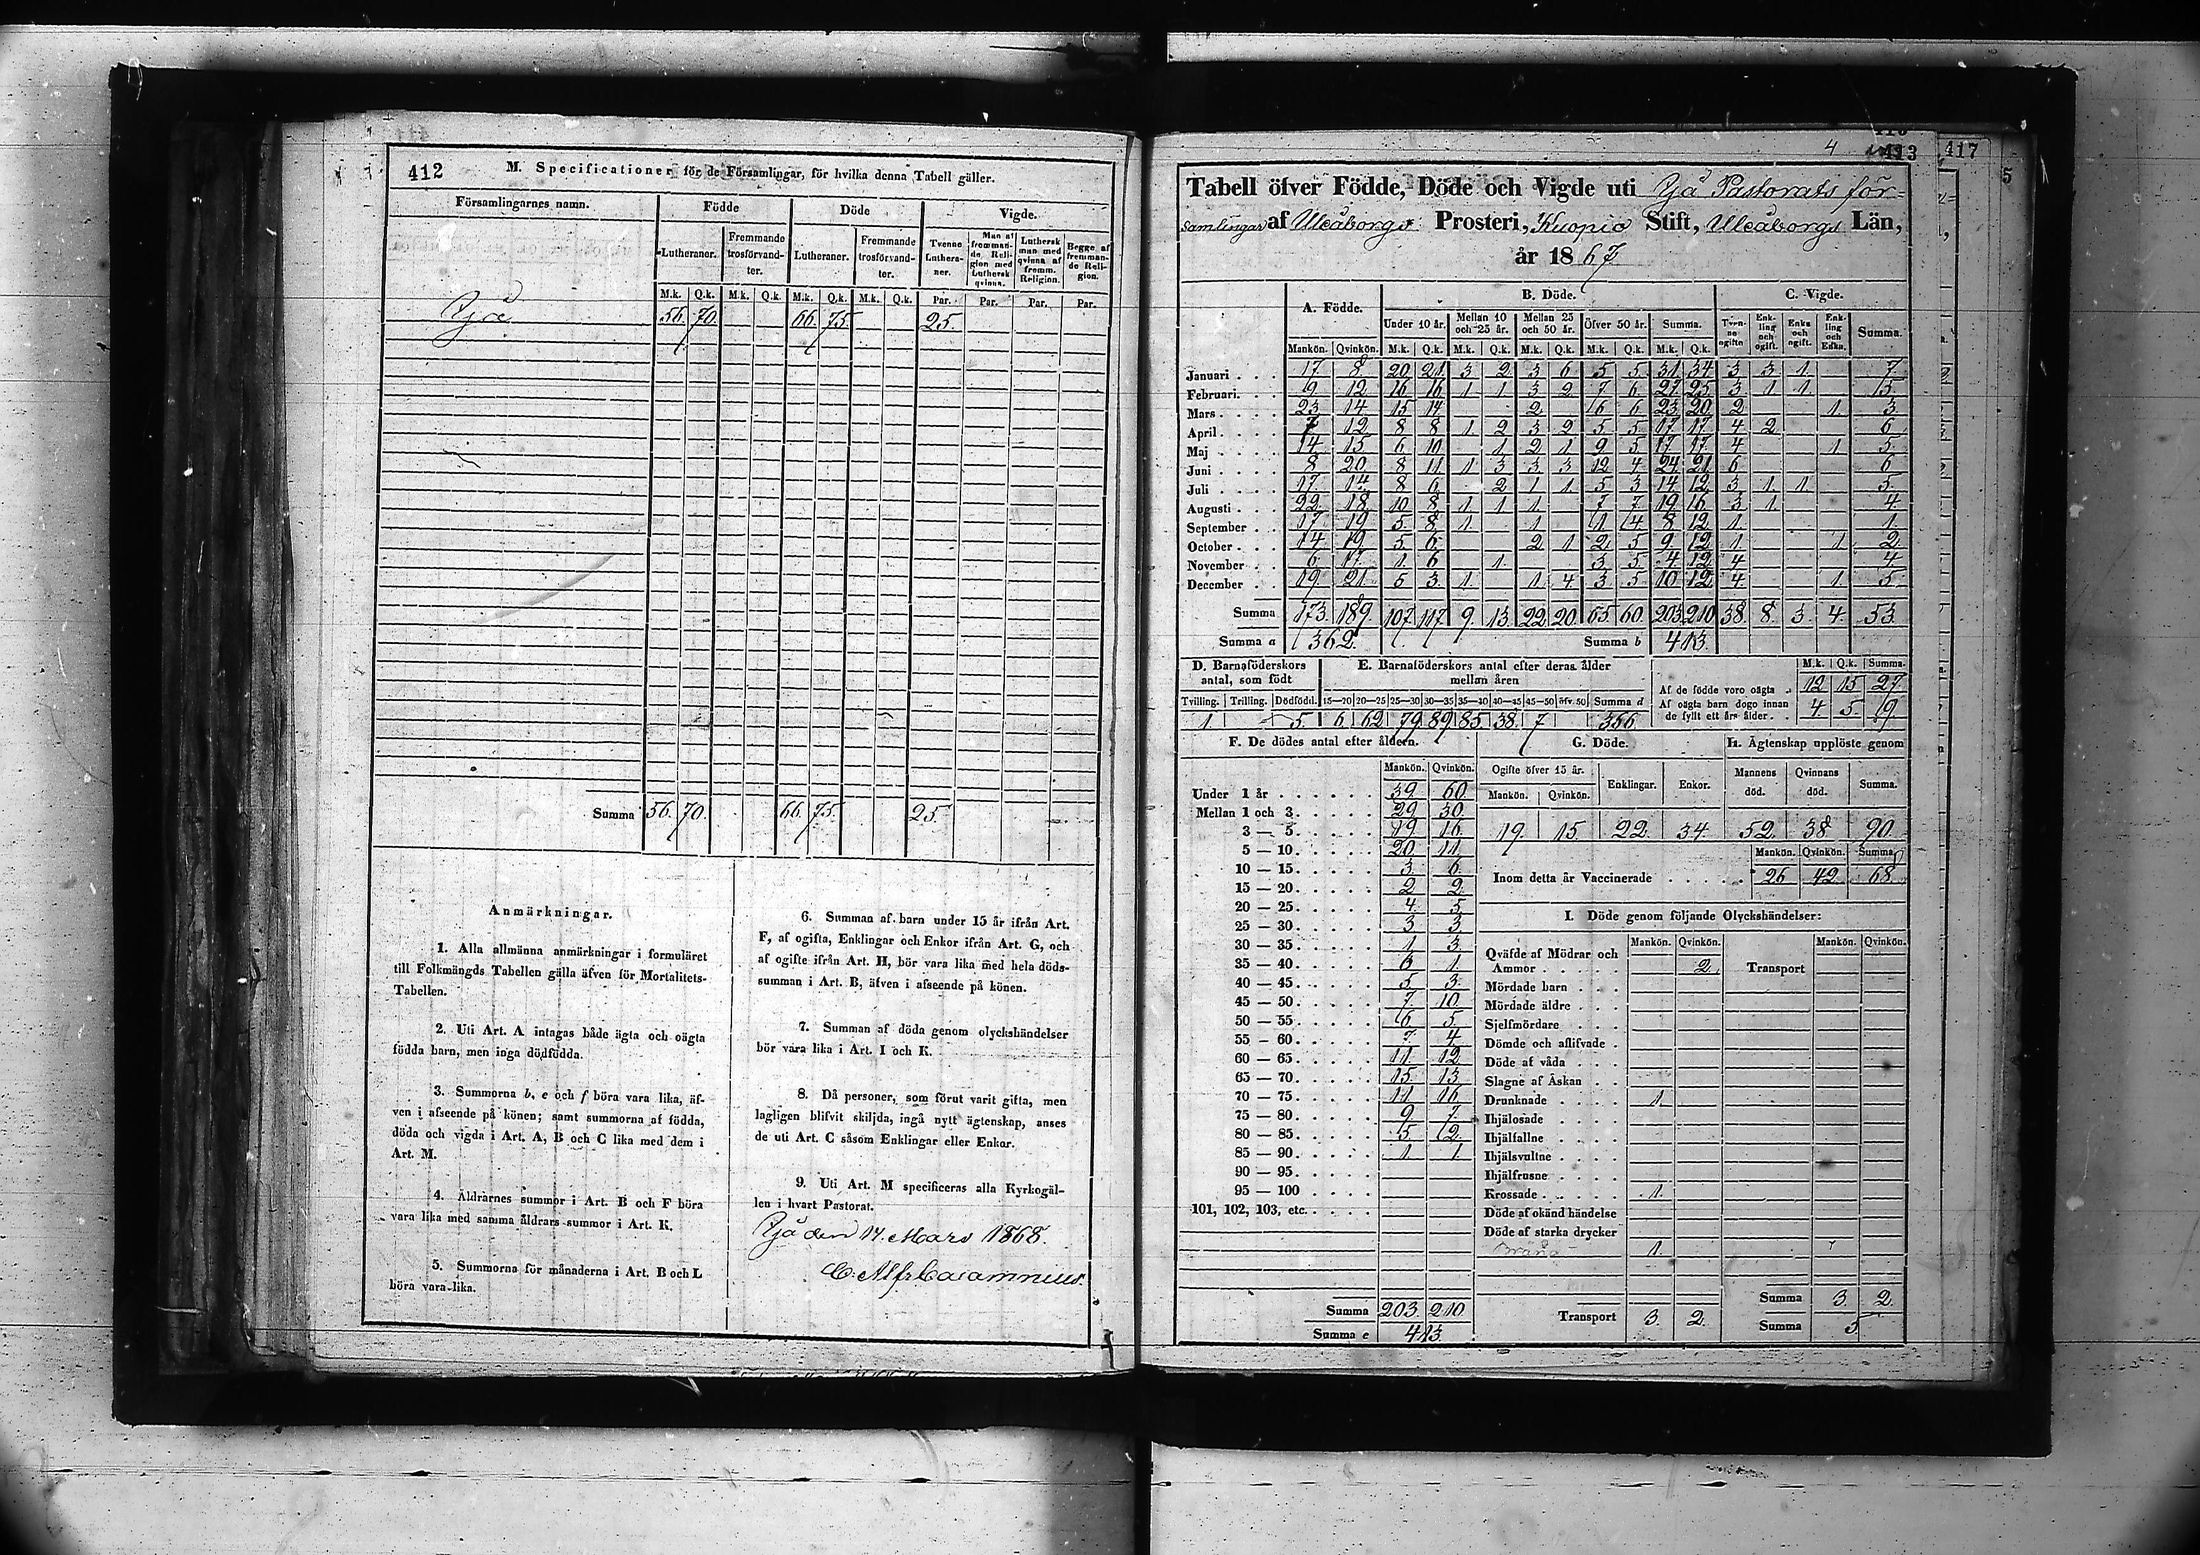 412
M. Specificationer för de Församlingar, för hvilka denna Tabell gäller.
Församlingarnes namn. Födde Döde Vigde.
Lutheraner. Fremmande trosförvandter. Lutheraner. Fremmande trosförvandter. Tvenne Lutheraner. Man af fremmande Religion med Luthersk qvinna. Luthersk man med qvinna af fremm. Religion. Begge af fremmande Religion.
M.k. Q.k. M.k. Q.k. M.k. Q.k. M.k. Q.k. Par. Par. Par. Par.
Ijå 56. 70. 66. 75. 25.
Summa 56. 70. 66. 75. 25.
Anmärkningar.
1. Alla allmänna anmärkningar i formuläret
till Folkmängds Tabellen gälla äfven för Mortalitets-
Tabellen.
2. Uti Art. A intagas både ägta och oägta
födda barn, men inga dödfödda.
3. Summorna b, e och f böra vara lika, äf-
ven i afseende på könen; samt summorna af födda,
döda och vigda i Art. A, B och C lika med dem i
Art. M.
4. Åldrarnes summor i Art. B och F böra
vara lika med samma åldrars summor i Art. K.
5. Summorna för månaderna i Art. B och L
böra vara lika.
6. Summan af barn under 15 år ifrån Art.
F, af ogifta, Enklingar och Enkor ifrån Art. G, och
af ogifte ifrån Art. H, bör vara lika med hela döds-
summan i Art. B, äfven i afseende på könen.
7. Summan af döda genom olyckshändelser
bör vara lika i Art. I och K.
8. Då personer, som förut varit gifta, men
lagligen blifvit skiljda, ingå nytt ägtenskap, anses
de uti Art. C såsom Enklingar eller Enkor.
9. Uti Art. M specificeras alla Kyrkogäl-
len i hvart Pastorat.
Ijå den 17. Mars 1868.
413
417
5
Tabell öfver Födde, Döde och Vigde uti Ijå Pastorats för-
samlingar af Uleåborgs Prosteri, Kuopio Stift, Uleåborgs Län,
år 1867
A. Födde. B. Döde. C. Vigde.
Under 10 år. Mellan 10 och 25 år. Mellan 25 och 50 år. Öfver 50 år. Summa. Tvenne ogifte Enkling och ogift. Enka och ogift. Enkling och Enka. Summa.
Mankön. Qvinkön. M.k. Q.k. M.k. Q.k. M.k. Q.k. M.k. Q.k. M.k. Q.k.
Januari 17 8 20 21 3 2 3 6 5 5 31 34 3 3 1 7
Februari 9 12 16 16 1 1 3 2 7 6 27 25 3 1 1 5
Mars 23 14 15 14 2 6 6 23 20 2 1 3
April 7 12 8 8 1 2 3 2 5 5 17 17 4 2 6
Maj 14 15 6 10 1 2 1 9 5 17 17 4 1 5
Juni 8 20 8 11 1 3 3 3 12 4 24 21 6 6
Juli 17 14 8 6 2 1 1 5 3 14 12 3 1 1 5
Augusti 22 18 10 8 1 1 1 7 7 19 16 3 1 4
September 17 19 5 8 1 1 1 4 8 12 1 1
October 14 19 5 6 2 1 2 5 9 12 1 1 2
November 6 17 1 6 1 3 5 4 12 4 4
December 19 21 5 3 1 1 4 3 5 10 12 4 1 5
Summa 173 189 107 117 9 13 22 20 65 60 203 210 38 8 3 4 53
Summa a 362 Summa b 413
D. Barnaföderskors antal, som födt E. Barnaföderskors antal efter deras ålder mellan åren
M.k. Q.k. Summa.
Af de födde voro oägta 12 15 27
Af oägta barn dogo innan de fyllt ett års ålder 4 5 9
Tvilling. Trilling. Dödfödd. 15—20 20—25 25—30 30—35 35—40 40—45 45—50 öfv. 50 Summa d
1 5 6 62 79 89 85 38 7 366
F. De dödes antal efter åldern. G. Döde. H. Ägtenskap upplöste genom
Mankön. Qvinkön. Ogifte öfver 15 år. Enklingar. Enkor. Mannens död. Qvinnans död. Summa.
Mankön. Qvinkön.
19 15 22 34 52 38 90
Mankön. Qvinkön. Summa
Inom detta år Vaccinerade 26 42 68
Under 1 år 39 60
Mellan 1 och 3 29 30
3 — 5 19 16
5 — 10 20 11
10 — 15 3 6
15 — 20 2 2
20 — 25 4 5
25 — 30 3 3
30 — 35 1 3
35 — 40 6 1
40 — 45 5 3
45 — 50 7 10
50 — 55 6 5
55 — 60 7 4
60 — 65 11 12
65 — 70 15 13
70 — 75 11 16
75 — 80 9 7
80 — 85 5 2
85 — 90 1 1
90 — 95
95 — 100
101, 102, 103, etc.
Summa 203 210
Summa e 413
I. Döde genom följande Olyckshändelser:
Mankön. Qvinkön. Mankön. Qvinkön.
Qväfde af Mödrar och
Ammor 2 Transport
Mördade barn
Mördade äldre
Sjelfmördare
Dömde och aflifvade
Döde af våda
Slagne af Åskan
Drunknade 1
Ihjälosade
Ihjälfallne
Ihjälsvultne
Ihjälfrusne
Krossade 1
Döde af okänd händelse
Döde af starka drycker
1
Summa 3 2
Transport 3 2 Summa 5